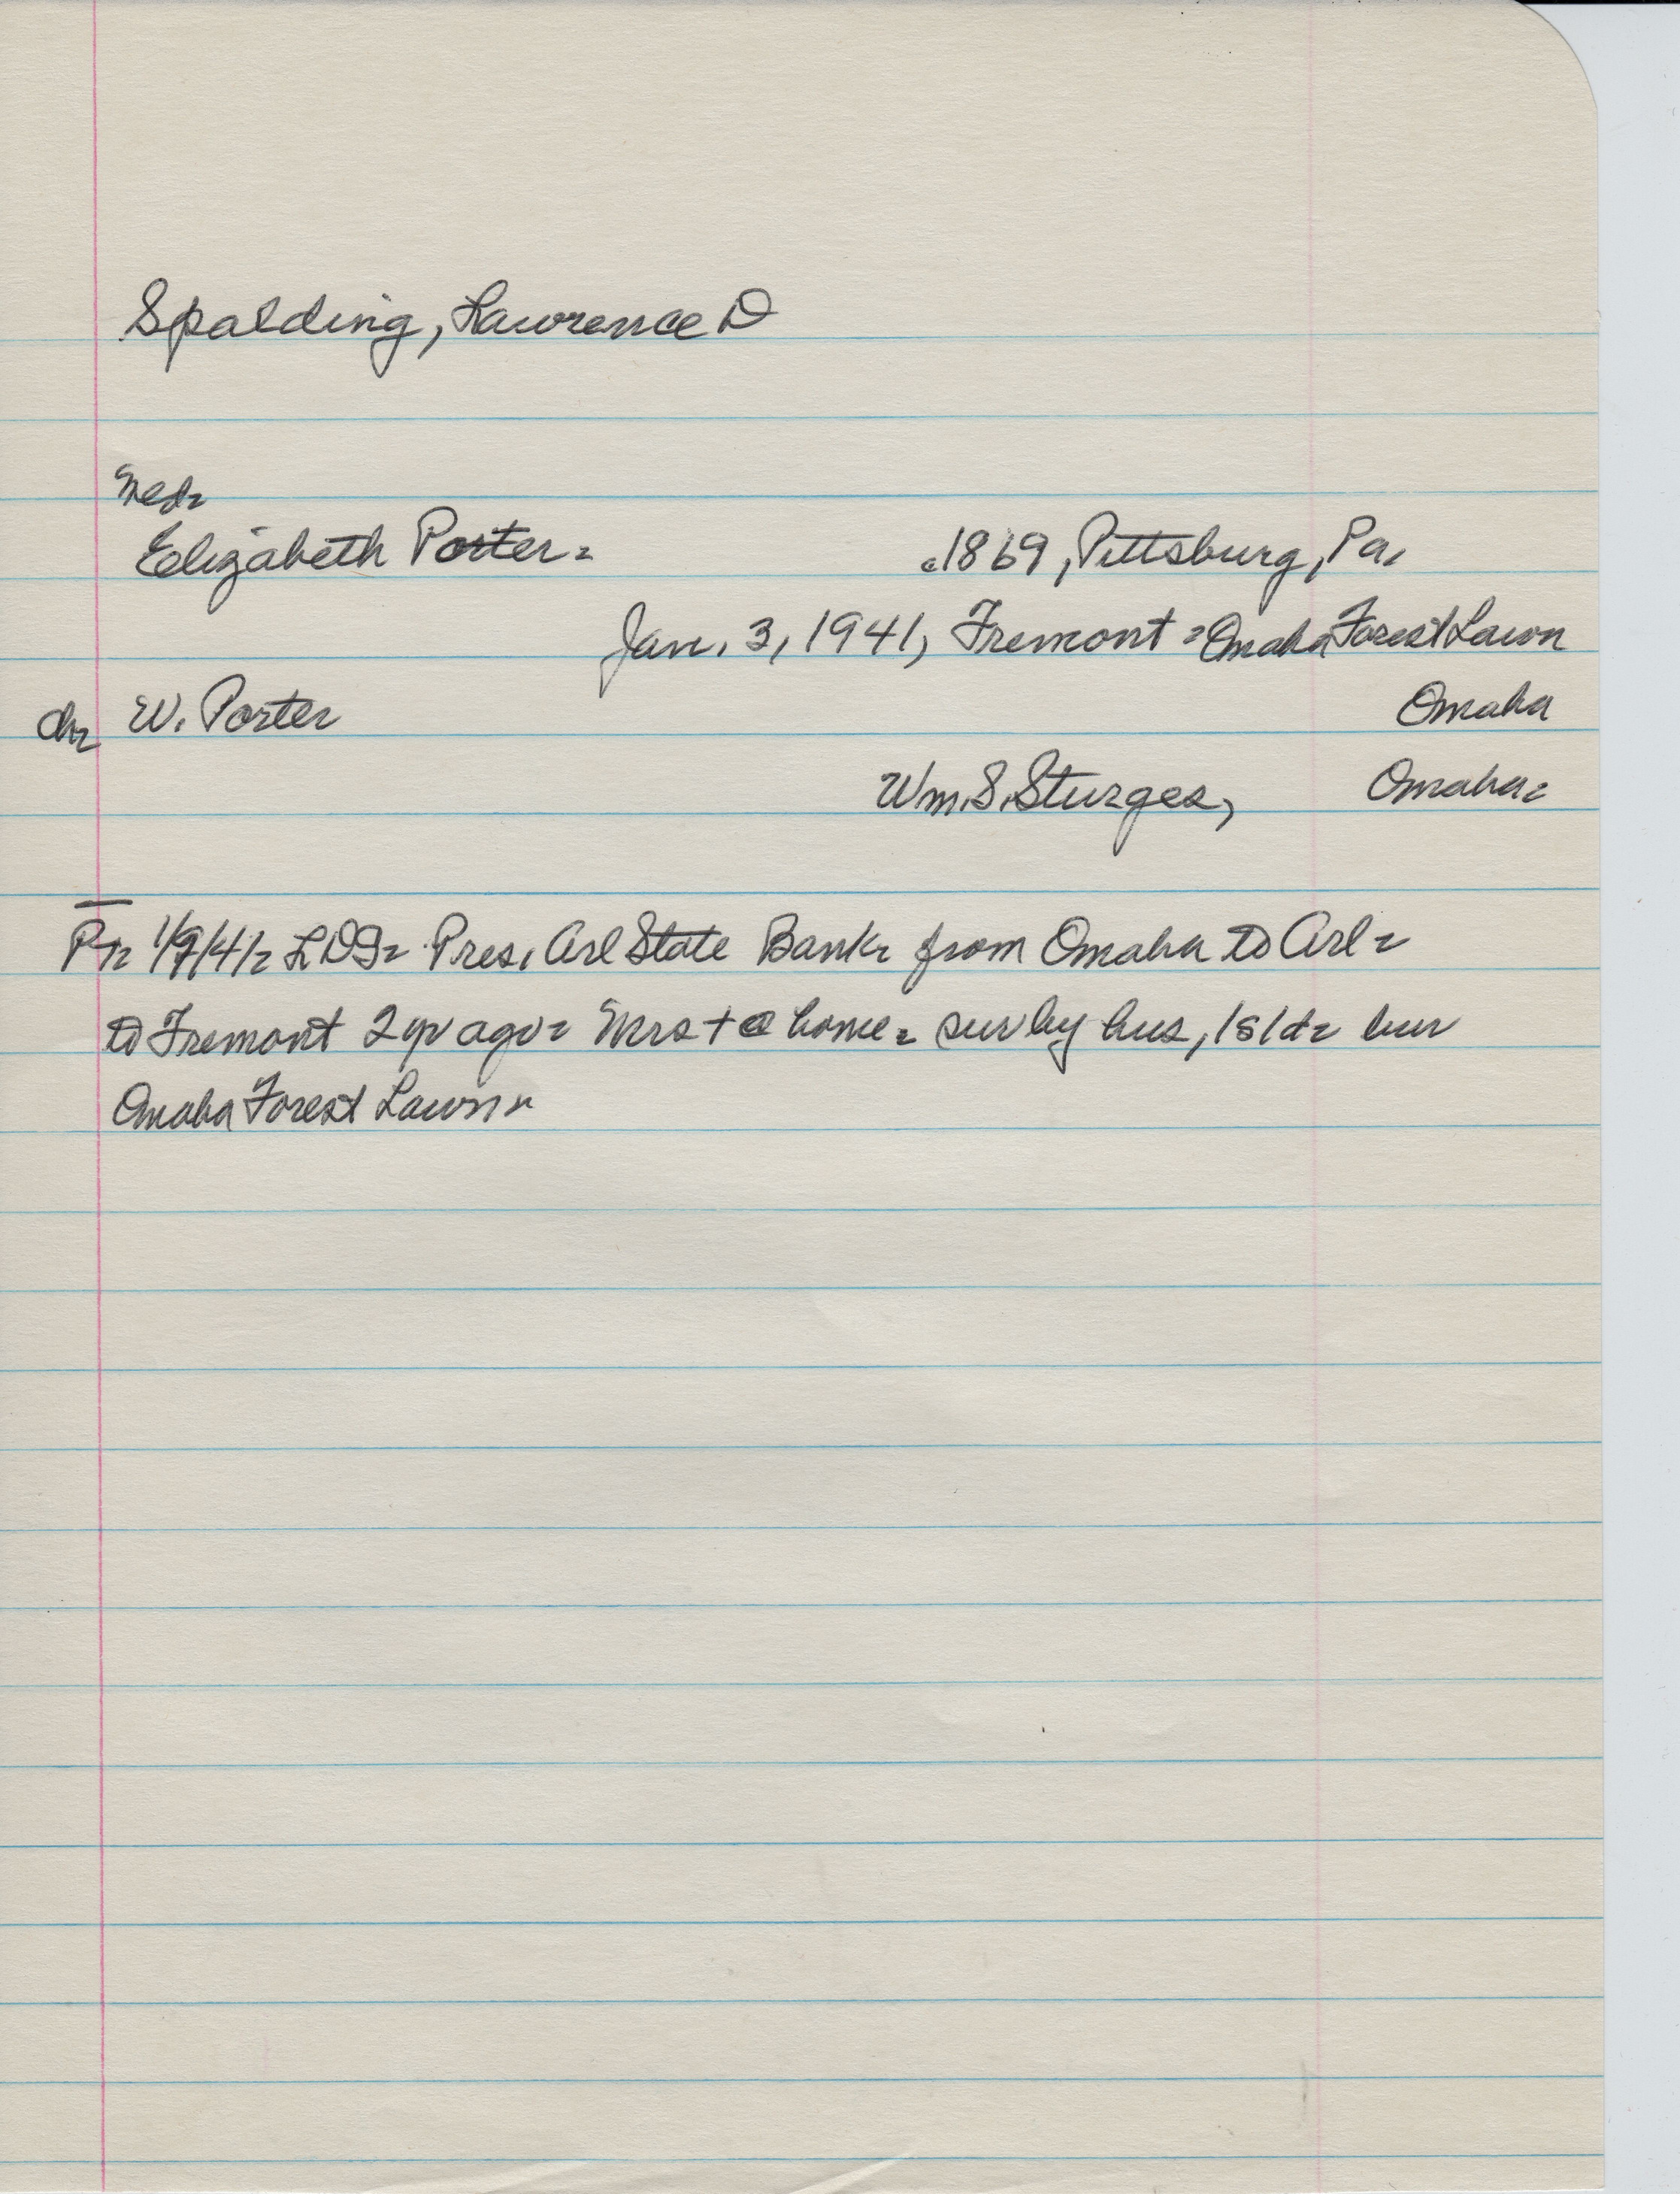 Spalding, Lawrence D
Elizabeth Porter - c1869, Pittsburg, Pa.
Jan. 3, 1941, Fremont - Omaha Forest Lawn
ch- W. Porter Omaha
Wm. S. Sturges, Omaha-
1/9/41- LDS- Pres. Arl State Bank- from Omaha to Arl-
to Fremont 2 yr ago- Mrs + @ home- sur by hus, 1s 1d- bur
Omaha Forest Lawn